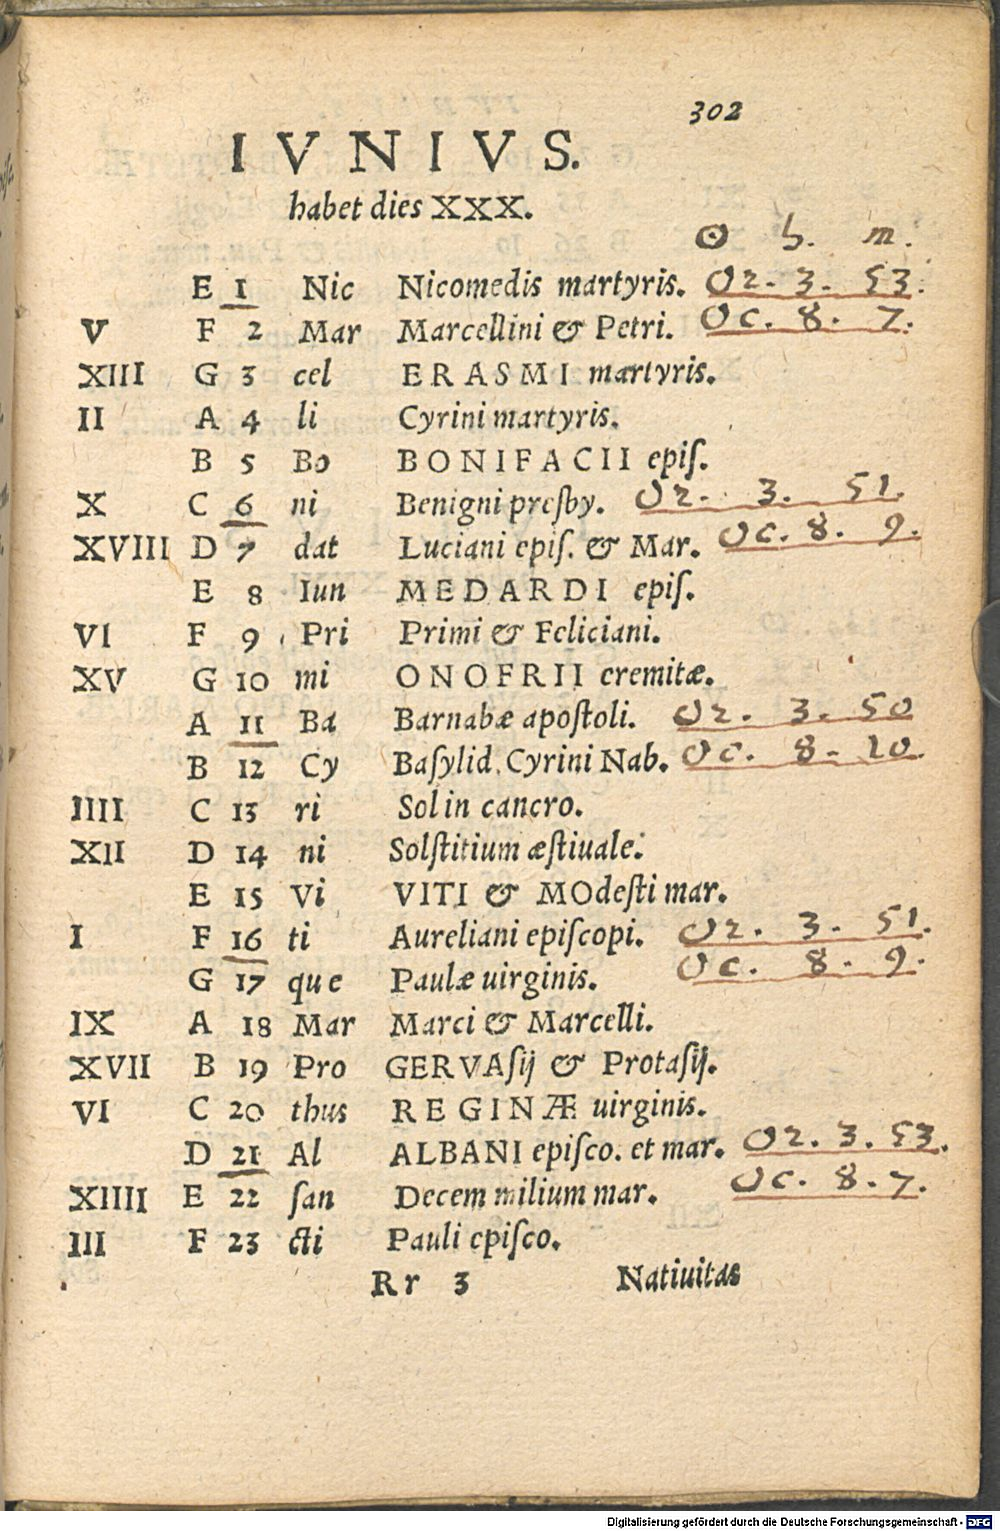 302
IVNIVS.
habet dies XXX.
☉ h. m.
E 1 Nic Nicomedis martyris. Or. 3. 53.
V F 2 Mar Marcellini & Petri. Oc. 8. 7.
XIII G 3 cel ERASMI martyris.
II A 4 li Cyrini martyris.
B 5 Bo BONIFACII epiſ.
X C 6 ni Benigni preſby. Or. 3. 51.
XVIII D 7 dat Luciani epiſ. & Mar. Oc. 8. 9.
E 8 Iun MEDARDI epiſ.
VI F 9 Pri Primi & Feliciani.
XV G 10 mi ONOFRII eremitæ.
A 11 Ba Barnabæ apoſtoli. Or. 3. 50
B 12 Cy Baſylid. Cyrini Nab. Oc. 8. 10
IIII C 13 ri Sol in cancro.
XII D 14 ni Solſtitium æſtiuale.
E 15 Vi VITI & MOdeſti mar.
I F 16 ti Aureliani epiſcopi. Or. 3. 51.
G 17 que Paulæ uirginis. Oc. 8. 9.
IX A 18 Mar Marci & Marcelli.
XVII B 19 Pro GERVAſij & Protaſij.
VI C 20 thus REGINÆ uirginis.
D 21 Al ALBANI epiſco. et mar. Or. 3. 53.
XIIII E 22 ſan Decem milium mar. Oc. 8. 7.
III F 23 cti Pauli epiſco.
Rr 3 Natiuitas
Digitalisierung gefördert durch die Deutsche Forschungsgemeinschaft - DFG